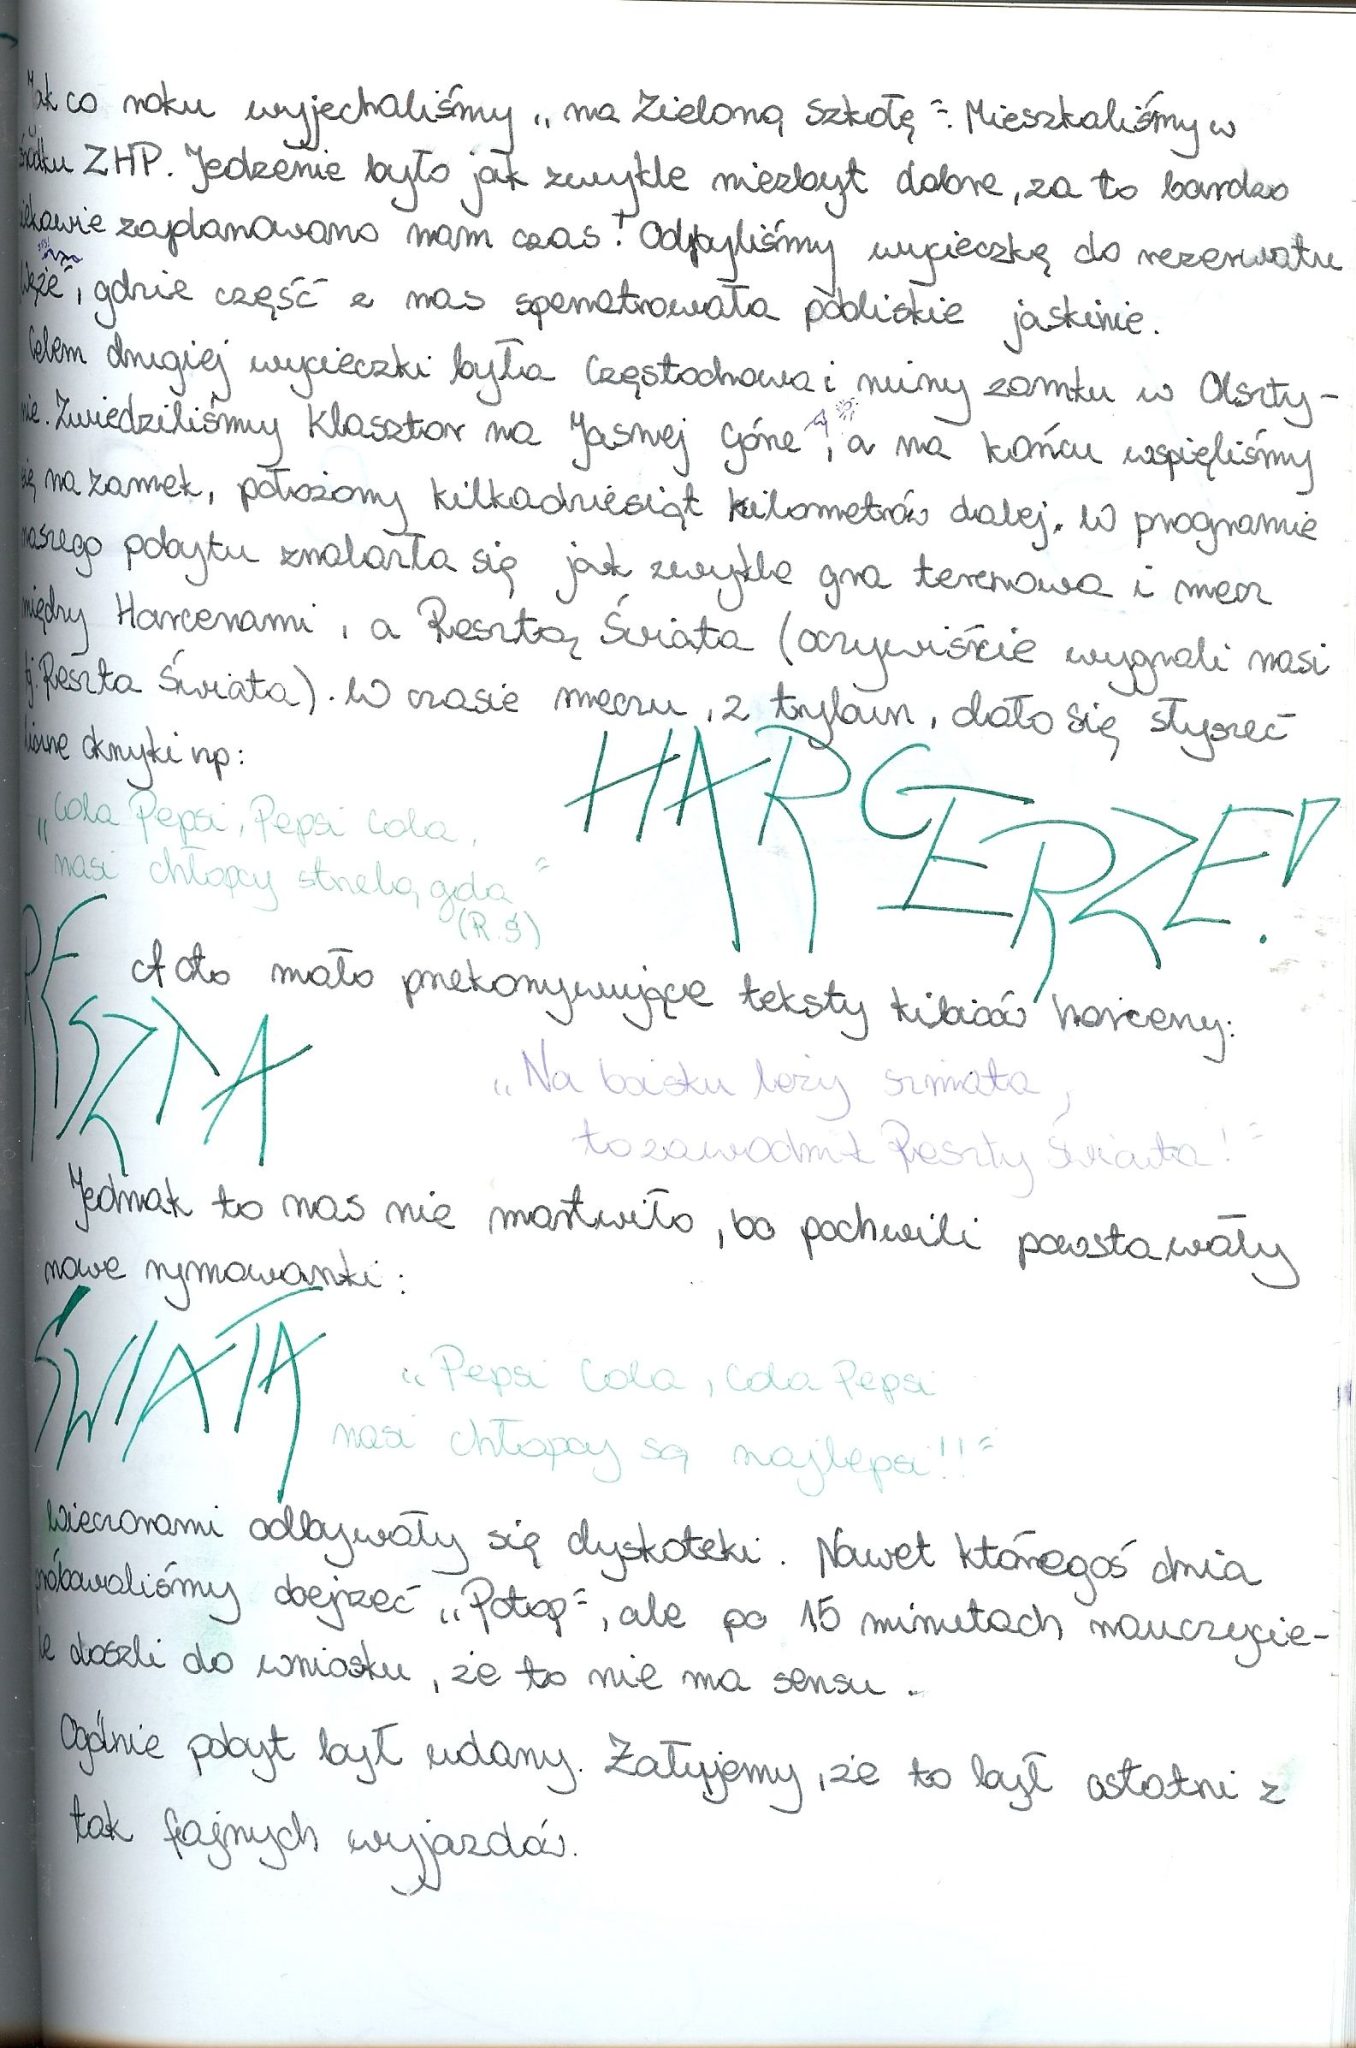 Jak co roku wyjechaliśmy „na Zieloną Szkołę". Mieszkaliśmy w
ośrodku ZHP. Jedzenie było jak zwykle niezbyt dobre, za to bardzo
ciekawie zaplanowano nam czas! Odbyliśmy wycieczkę do rezerwatu
Węże", gdzie część z nas spenetrowała pobliskie jaskinie.
Celem drugiej wycieczki była Częstochowa i ruiny zamku w Olszty-
nie. Zwiedziliśmy Klasztor na Jasnej Górze, a na końcu wspięliśmy
się na zamek, położony kilkadziesiąt kilometrów dalej. W programie
naszego pobytu znalazła się jak zwykle gra terenowa i mecz
między Harcerzami, a Resztą Świata (oczywiście wygrali nasi
tj. Reszta Świata). W czasie meczu, z trybun, dało się słyszeć
liczne okrzyki np:
HARCERZE!
„Cola Pepsi, Pepsi Cola,
nasi chłopcy strzelą gola"
(R.Ś)
RESZTA
A oto mało przekonywujące teksty kibiców harcerzy:
„Na boisku leży szmata,
to zawodnik Reszty Świata!"
Jednak to nas nie martwiło, bo po chwili powstawały
nowe rymowanki:
ŚWIATA
„Pepsi Cola, Cola Pepsi
nasi chłopcy są najlepsi!!"
Wieczorami odbywały się dyskoteki. Nawet któregoś dnia
próbowaliśmy obejrzeć „Potop", ale po 15 minutach nauczycie-
le doszli do wniosku, że to nie ma sensu.
Ogólnie pobyt był udany. Żałujemy, że to był ostatni z
tak fajnych wyjazdów.